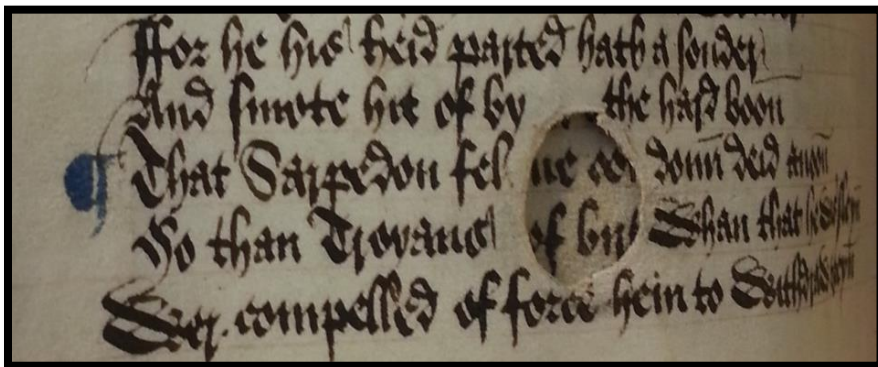 ffor he his heid parted hath a sonder
And smote hit of by the hard boon
That Sarpedon fel ne doun deid anon
So than Troyans of Whan that he
Wer compelled of force hem to